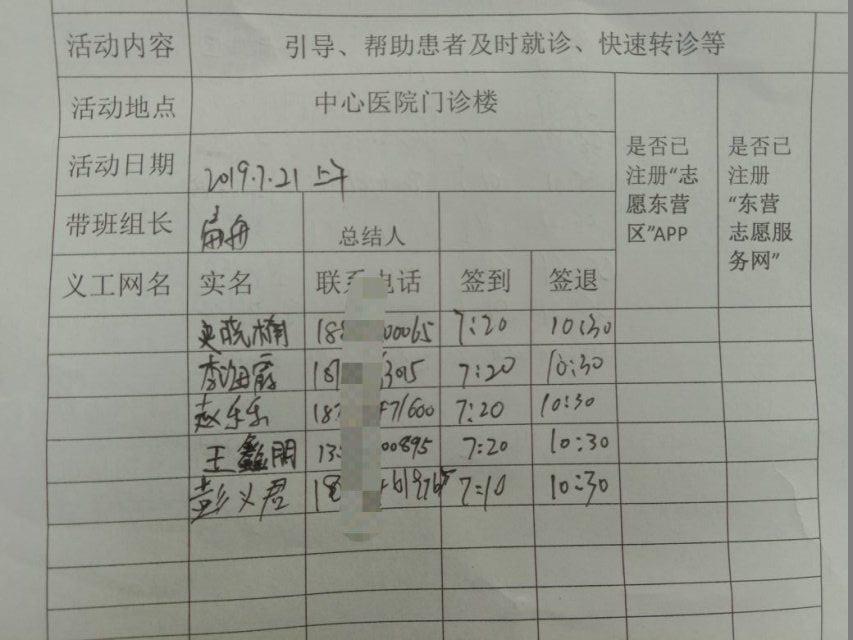 活动内容 引导、帮助患者及时就诊、快速转诊等
活动地点 中心医院门诊楼
是否已注册“志愿东营区”APP
是否已注册“东营志愿服务网”
活动日期 2019.7.21 上午
带班组长 扁舟 总结人
义工网名 实名 联系电话 签到 签退
晓楠 18 00065 7:20 10:30
李海霞 18 3015 7:20 10:30
赵乐乐 187 471600 7:20 10:30
王鑫明 13 00895 7:20 10:30
彭义君 18 7:10 10:30